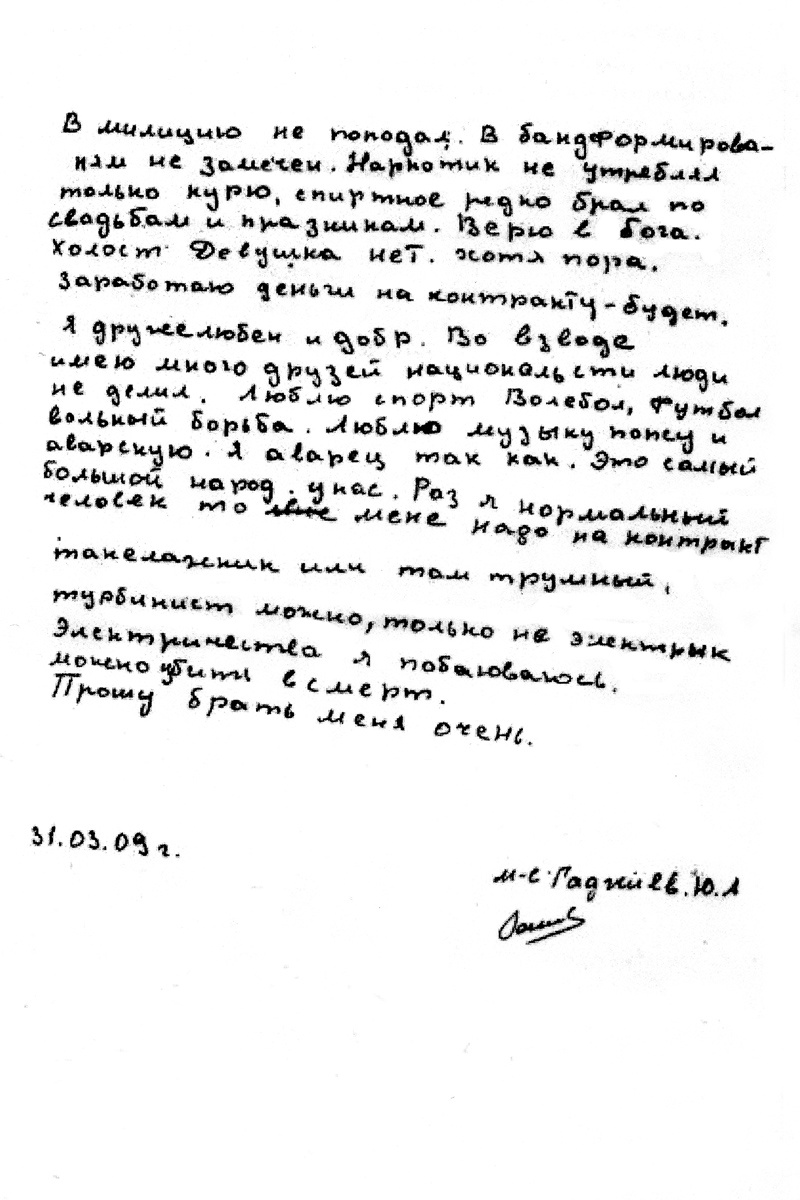 В милицию не поподал. В бандформирова-
ням не замечен. Наркотик не утреблял
только курю, спиртное редко брал по
свадьбам и празникам. Верю в бога.
Холост Девушка нет. хотя пора.
Заработаю деньги на контракту-будет.
Я дружелюбен и добр. Во взводе
имею много друзей национальсти люди
не делил. Люблю спорт Волебол, Футбол
вольный борьба. Люблю музыку попсу и
аварскую. Я аварец так как. Это самый
большой народ. унас. Раз я нормальный
человек то мене надо на контракт
такелажник или там трумный,
турбинист можно, только не электрык
Электричества я побаюваюсь.
можно убити всмерт.
Прошу брать меня очень.
31.03.09 г.
м-с Гаджиев. Ю. А